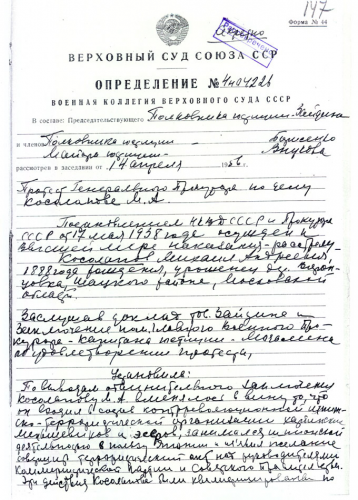 147
Форма № 44
ВЕРХОВНЫЙ СУД СОЮЗА ССР
ОПРЕДЕЛЕНИЕ № 4н-04226
ВОЕННАЯ КОЛЛЕГИЯ ВЕРХОВНОГО СУДА СССР
В составе: Председательствующего Полковника юстиции Зайдина
и членов Полковника юстиции —
Майора юстиции —
рассмотрев в заседании от 14 апреля 1956 г.
Протест Генерального Прокурора по делу
Косолапова М.А
Постановлением НКВД СССР и Прокурора
СССР от 17 мая 1938 года осужден к
высшей мере наказания - расстрелу
Косолапов Михаил Андреевич,
1888 года рождения, уроженец д.
Шацкого района, Московской
области.
Заслушав доклад тов. Зайдина и
заключение пом. Главного военного Про-
курора - капитана юстиции
об удовлетворении протеста,
Установила:
По выводам обвинительного заключения
Косолапову М.А. вменялось в вину то, что
он входил в состав контрреволюционной
террористической организации
меньшевиков и эсеров, занимался шпионской
деятельностью в пользу Японии и имел желание
совершить террористический акт над руководителями
Коммунистической Партии и Советского Правительства.
Эти действия Косолапова были квалифицированы по